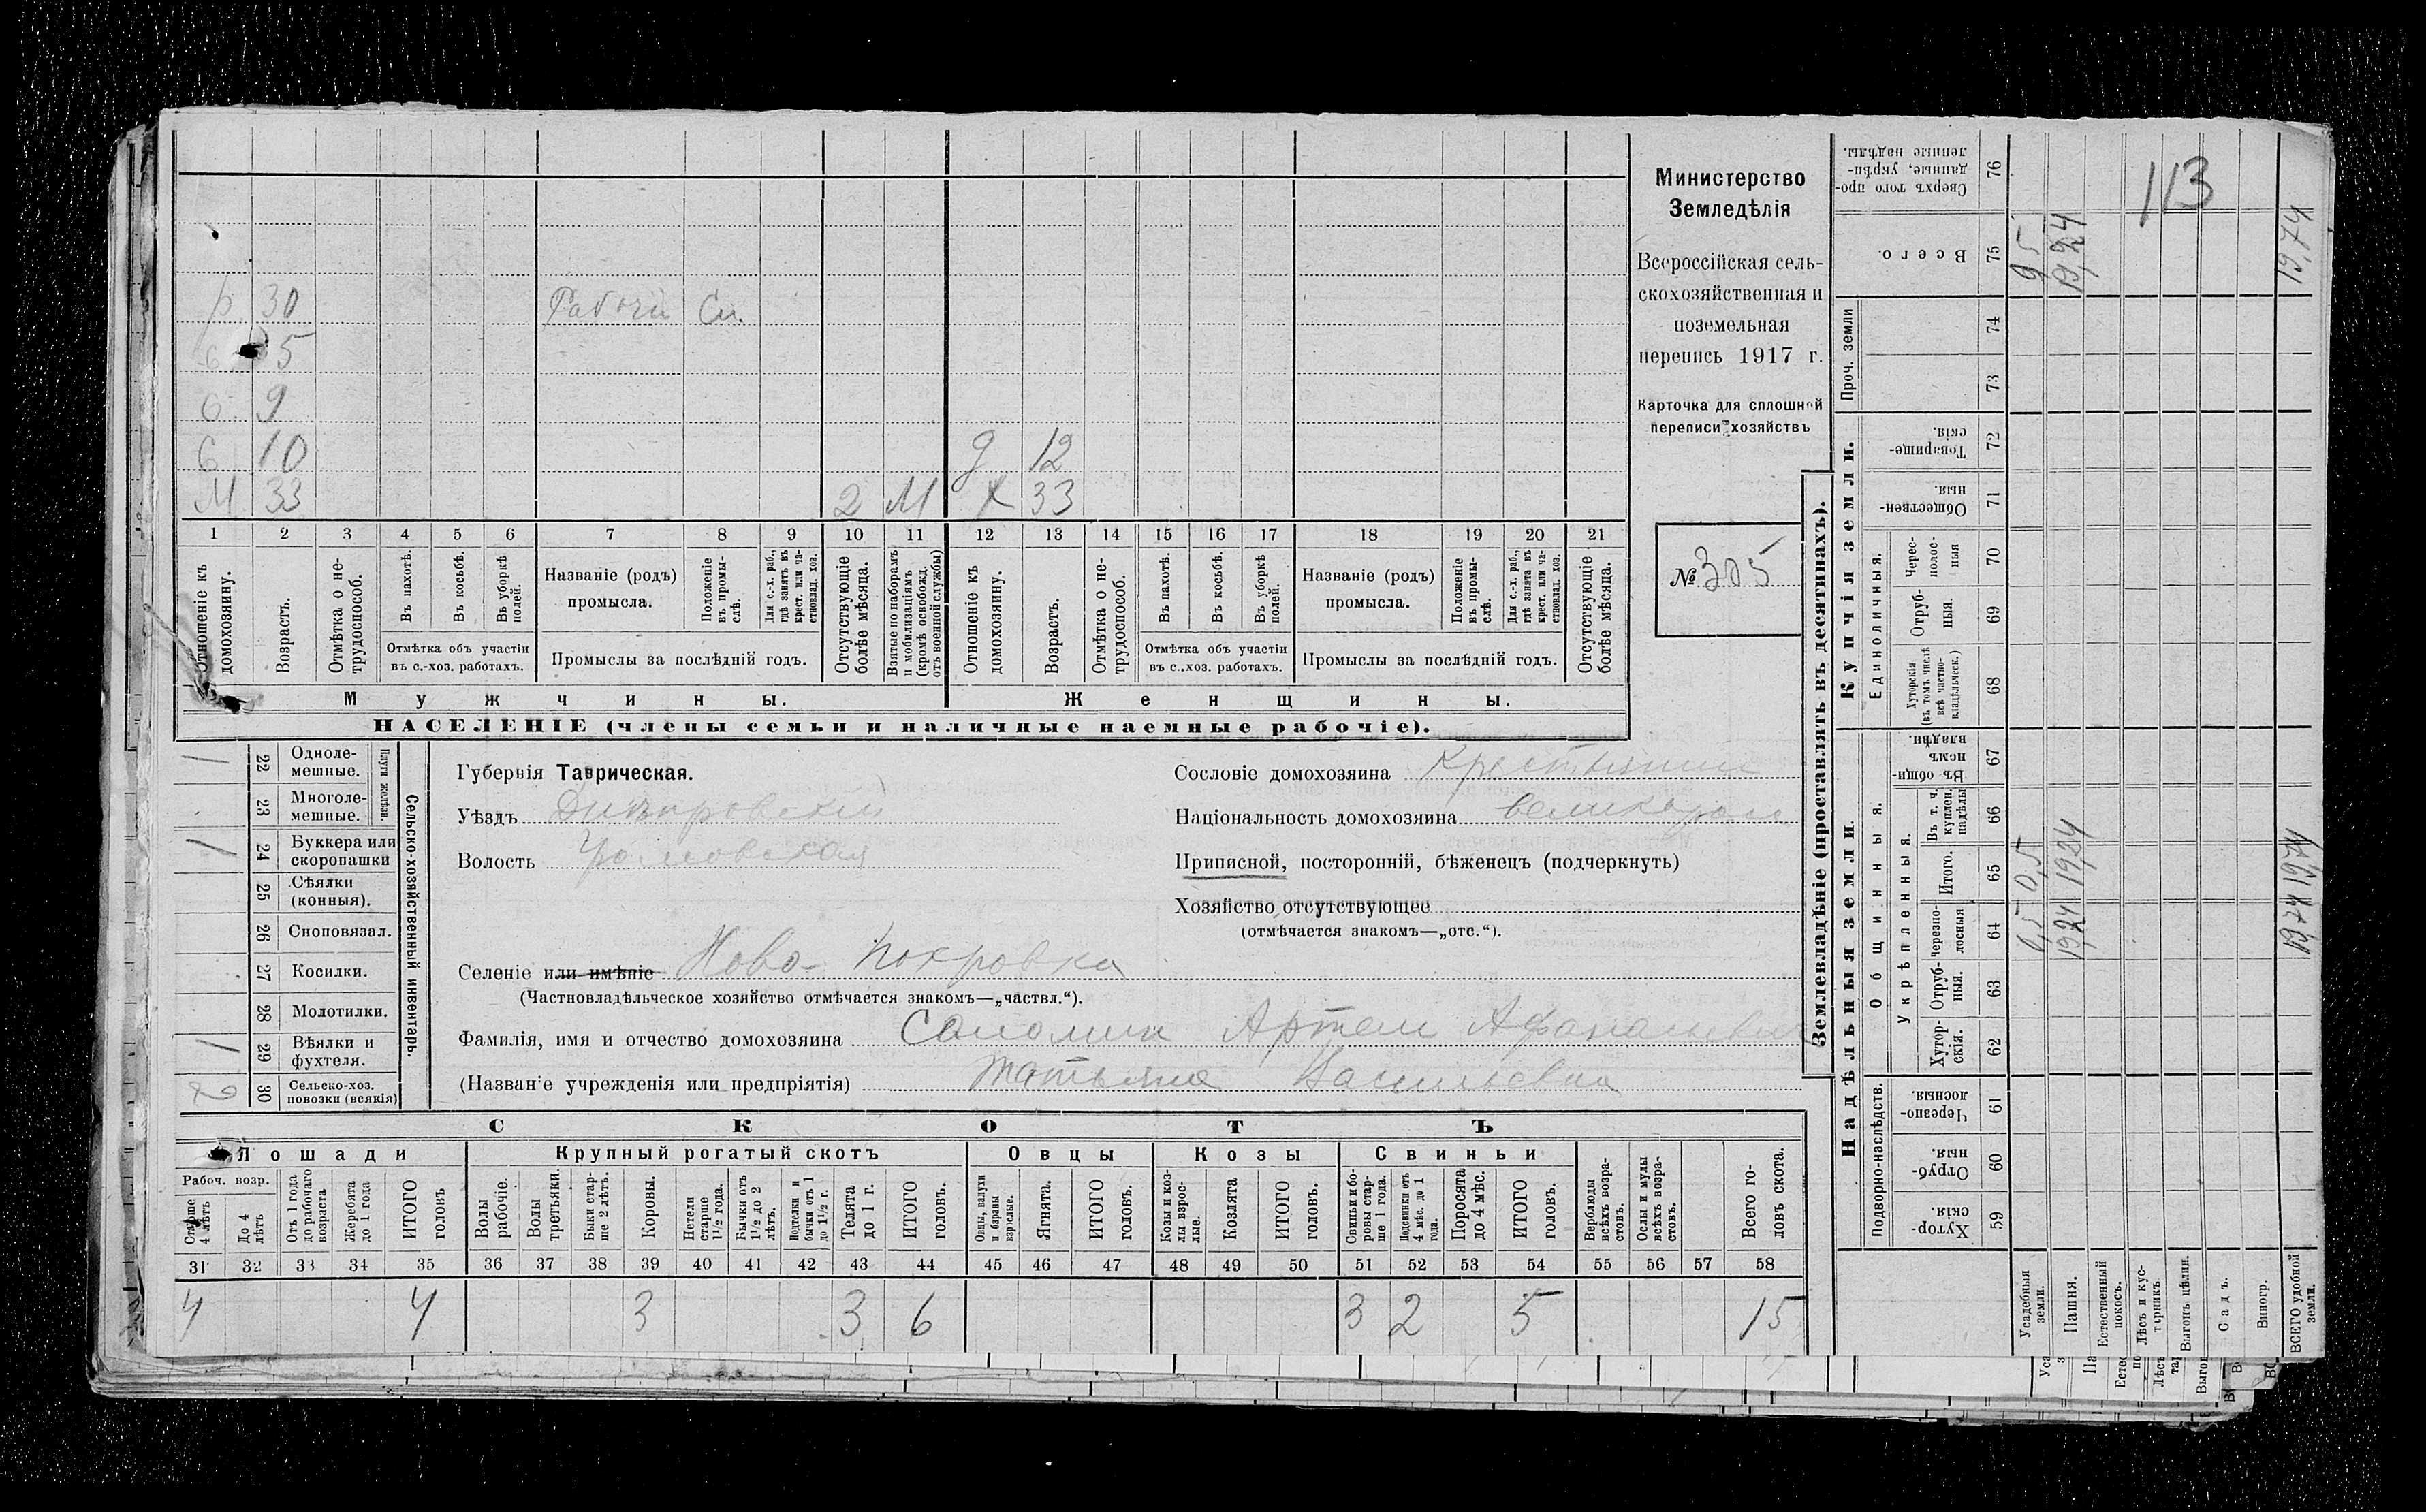 р. 30 Рабочій Сп.
с 5
с. 9
с 10 д 12
М 33 2 М х 33
1 2 3 4 5 6 7 8 9 10 11 12 13 14 15 16 17 18 19 20 21
Отношеніе къ домохозяину.
Возрастъ.
Отмѣтка о нетрудоспособ.
Въ пахотѣ.
Въ косьбѣ.
Въ уборкѣ полей.
Отмѣтка объ участіи въ с.-хоз. работахъ.
Названіе (родъ) промысла.
Положеніе въ промыслѣ.
Для с.-х. раб., гдѣ занятъ въ крест. или частновлад. хоз.
Промыслы за послѣдній годъ.
Отсутствующіе болѣе мѣсяца.
Взятые по наборамъ и мобилизаціямъ (кромѣ освобожд. отъ военной службы)
Отношеніе къ домохозяину.
Возрастъ.
Отмѣтка о нетрудоспособ.
Въ пахотѣ.
Въ косьбѣ.
Въ уборкѣ полей.
Отмѣтка объ участіи въ с.-хоз. работахъ.
Названіе (родъ) промысла.
Положеніе въ промыслѣ.
Для с.-х. раб., гдѣ занята въ крест. или частновлад. хоз.
Промыслы за послѣдній годъ.
Отсутствующіе болѣе мѣсяца.
Мужчины. Женщины.
НАСЕЛЕНІЕ (члены семьи и наличные наемные рабочіе).
Министерство
Земледѣлія
Всероссійская сель-
скохозяйственная и
поземельная
перепись 1917 г.
Карточка для сплошной
переписи хозяйствъ
№ 305
Сельско-хозяйственный инвентарь.
Плуги желѣзн.
1 22 Одноле-мешные.
23 Многоле-мешные.
1 24 Буккера или скоропашки
25 Сѣялки (конныя).
26 Сноповязал.
27 Косилки.
28 Молотилки.
1 29 Вѣялки и фухтеля.
2 30 Сельско-хоз. повозки (всякія)
Губернія Таврическая.
Уѣздъ Днѣпровскій
Волость
Сословіе домохозяина Крестьянин
Національность домохозяина великорос
Приписной, посторонній, бѣженецъ (подчеркнуть)
Хозяйство отсутствующее
(отмѣчается знакомъ—„отс.“).
Селеніе или имѣніе Ново-Покровка
(Частновладѣльческое хозяйство отмѣчается знакомъ—„частвл.“).
Фамилія, имя и отчество домохозяина Саломин Артем Афанасьевич
(Названіе учрежденія или предпріятія) Татьяна Васильевна
СКОТЪ
Лошади Крупный рогатый скотъ Овцы Козы Свиньи
Рабоч. возр.
Старше 4 лѣтъ
До 4 лѣтъ
Отъ 1 года до рабочаго возраста
Жеребята до 1 года
ИТОГО головъ
Волы рабочіе.
Волы третьяки.
Быки старше 2 лѣтъ.
Коровы.
Нетели старше 1½ года.
Бычки отъ 1½ до 2 лѣтъ.
Подтелки и бычки отъ 1 до 1½ г.
Телята до 1 г.
ИТОГО головъ.
Овцы, валухи и бараны взрослые.
Ягнята.
ИТОГО головъ.
Козы и козлы взрослые.
Козлята
ИТОГО головъ.
Свиньи и боровы старше 1 года.
Подсвинки отъ 4 мѣс. до 1 года.
Поросята до 4 мѣс.
ИТОГО головъ.
Верблюды всѣхъ возрастовъ.
Ослы и мулы всѣхъ возрастовъ.
Всего головъ скота.
31 32 33 34 35 36 37 38 39 40 41 42 43 44 45 46 47 48 49 50 51 52 53 54 55 56 57 58
4 4 3 3 6 3 2 5 15
Землевладѣніе (проставлять въ десятинахъ).
Купчія земли.
Надѣльныя земли.
Сверхъ того проданные, укрѣпленные надѣлы. 76
Всего. 75
Проч. земли 74 73
Товарищескія. 72
Общественныя. 71
Единоличныя.
Чересполосныя 70
Отрубныя. 69
Хуторскія (въ томъ числѣ всѣ частновладѣльческ.) 68
Въ общинномъ владѣн. 67
Общинныя.
Укрѣпленныя.
Въ т. ч. куплен. надѣлы 66
Итого. 65
Черезполосныя 64
Отрубныя. 63
Хуторскія. 62
Подворно-наслѣдств.
Черезполосныя. 61
Отрубныя. 60
Хуторскія. 59
Усадебныя земли. 0,5 0,5 0,5
Пашня. 19,24 19,24 19,24
Естественный покосъ.
Лѣсъ и кустарникъ
Выгонъ цѣлин.
Садъ.
Виногр.
ВСЕГО удобной земли. 19,74 19,74 19,74
113